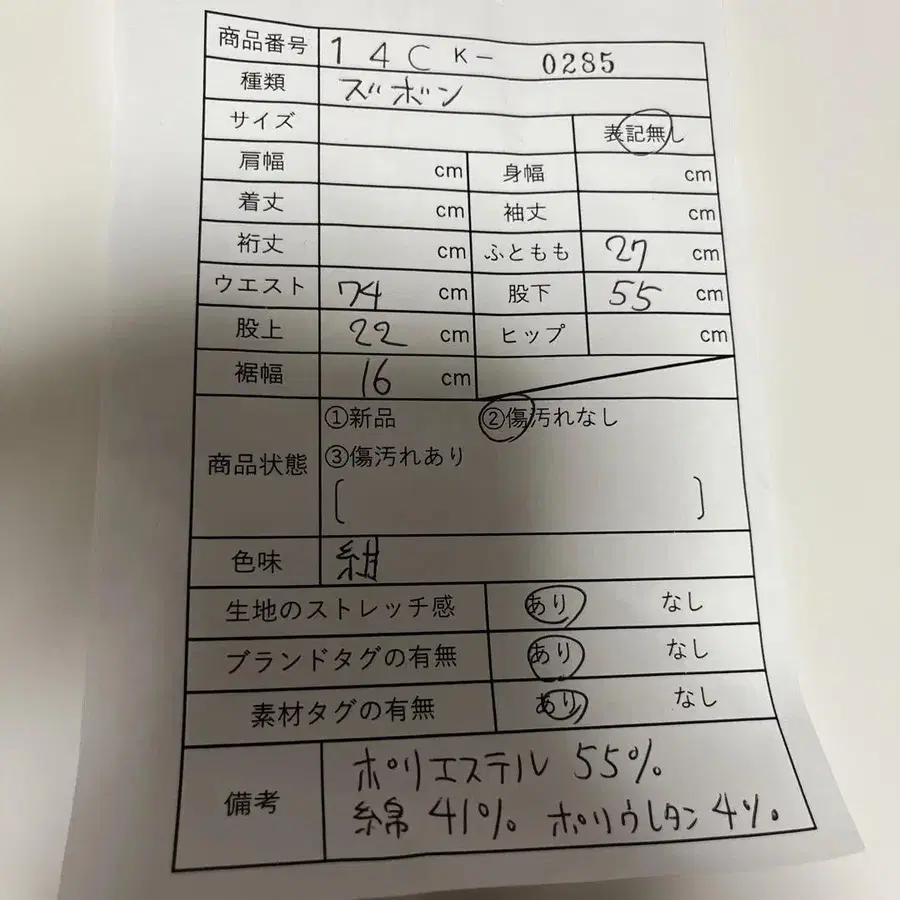 商品番号 14C K- 0285
種類 ズボン
サイズ 表記無し
肩幅 cm 身幅 cm
着丈 cm 袖丈 cm
裄丈 cm ふともも 27 cm
ウエスト 74 cm 股下 55 cm
股上 22 cm ヒップ cm
裾幅 16 cm
①新品 ②傷汚れなし
商品状態 ③傷汚れあり
[ ]
色味 紺
生地のストレッチ感 あり なし
ブランドタグの有無 あり なし
素材タグの有無 あり なし
備考 ポリエステル 55%
綿 41% ポリウレタン 4%